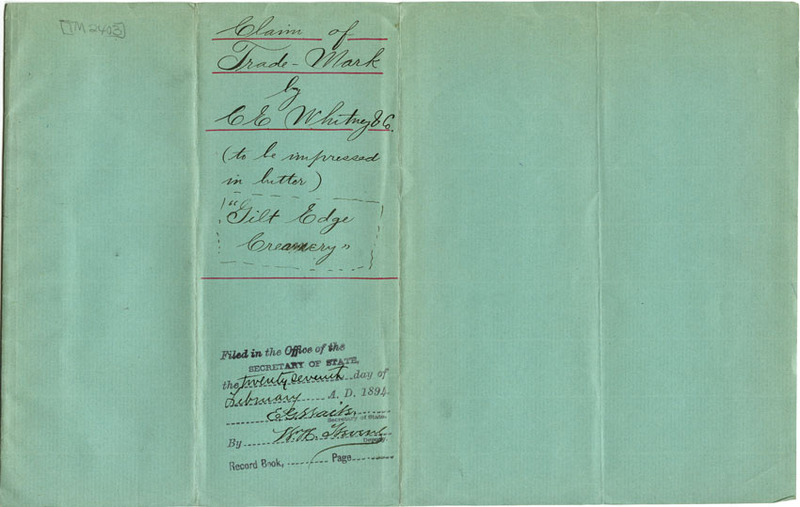 [TM 2403]
Claim of
Trade-Mark
by
C E Whitney & C.
(to be impressed
in butter)
"Gilt Edge
Creamery"
Filed in the Office of the
SECRETARY OF STATE,
the twenty seventh day of
February A. D. 1894
E G Waite
Secretary of State.
By W. H.
Deputy.
Record Book, Page